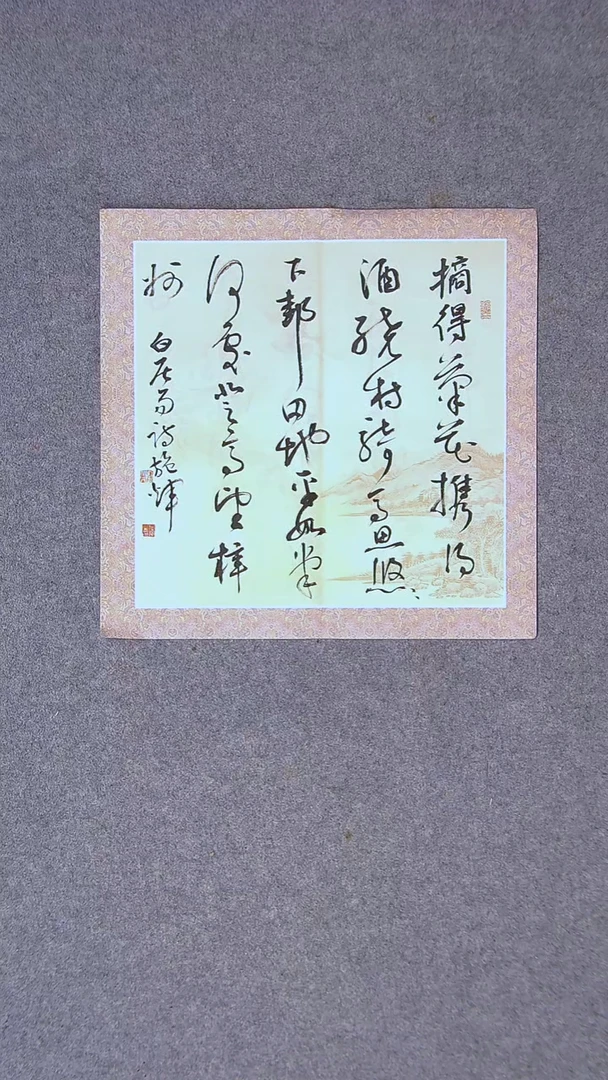 摘得菊花携得
酒绕村骑马思悠悠
下邽田地平如掌
何处登高望梓
州
白居易诗施辉